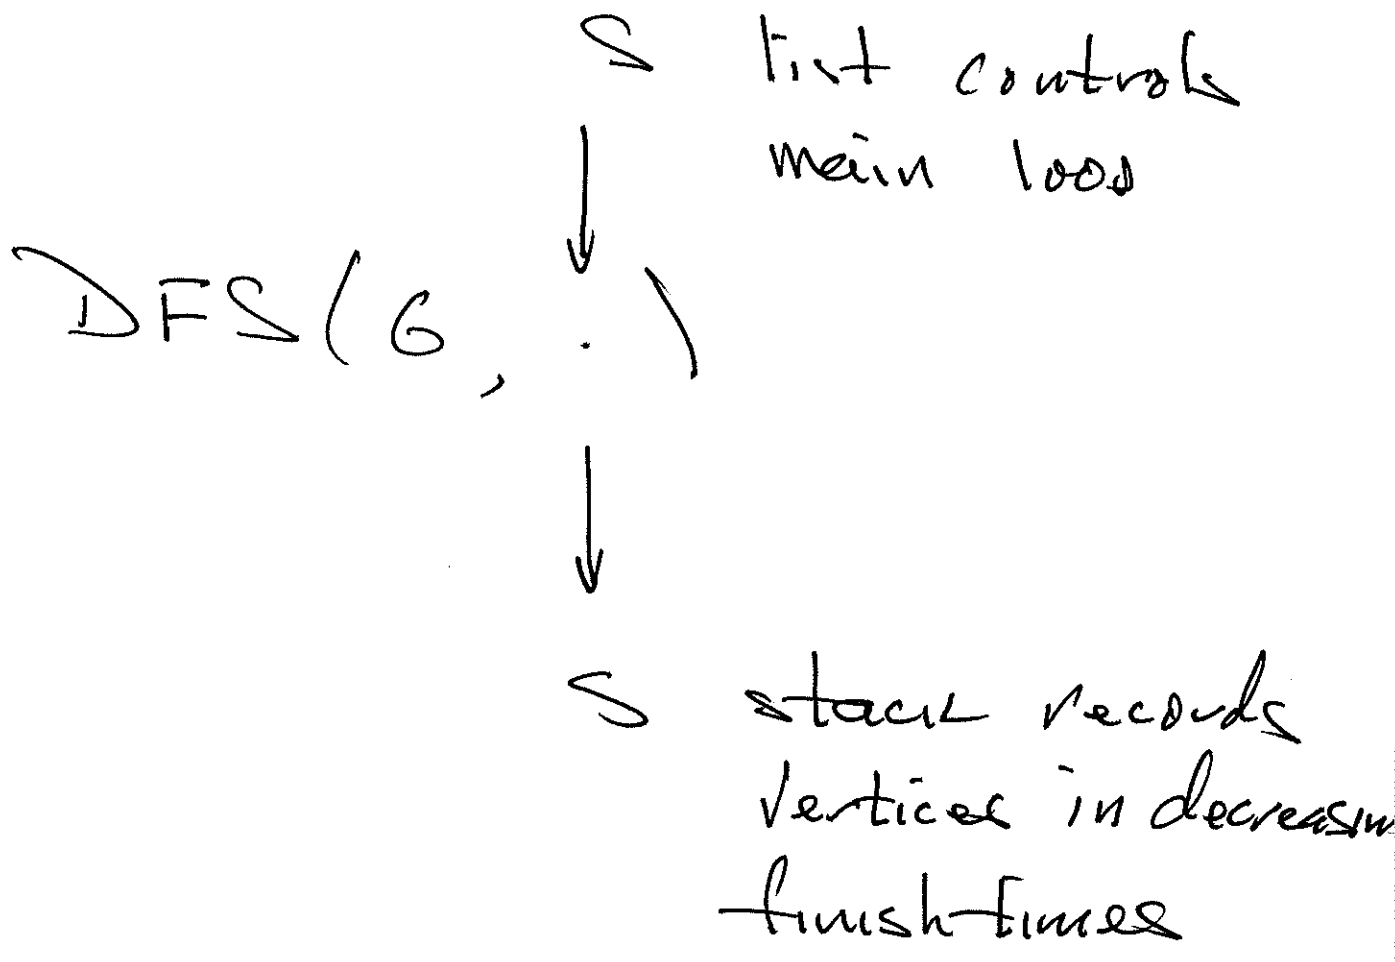 S list controls
main loop
DFS(G, · )
S stack records
vertices in decreasin
finish times